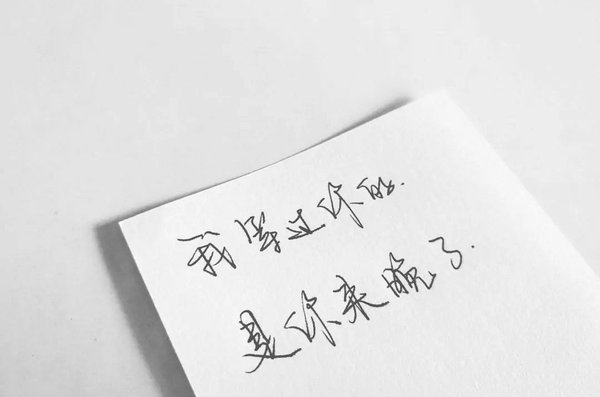 我等过你的.
是你来晚了.